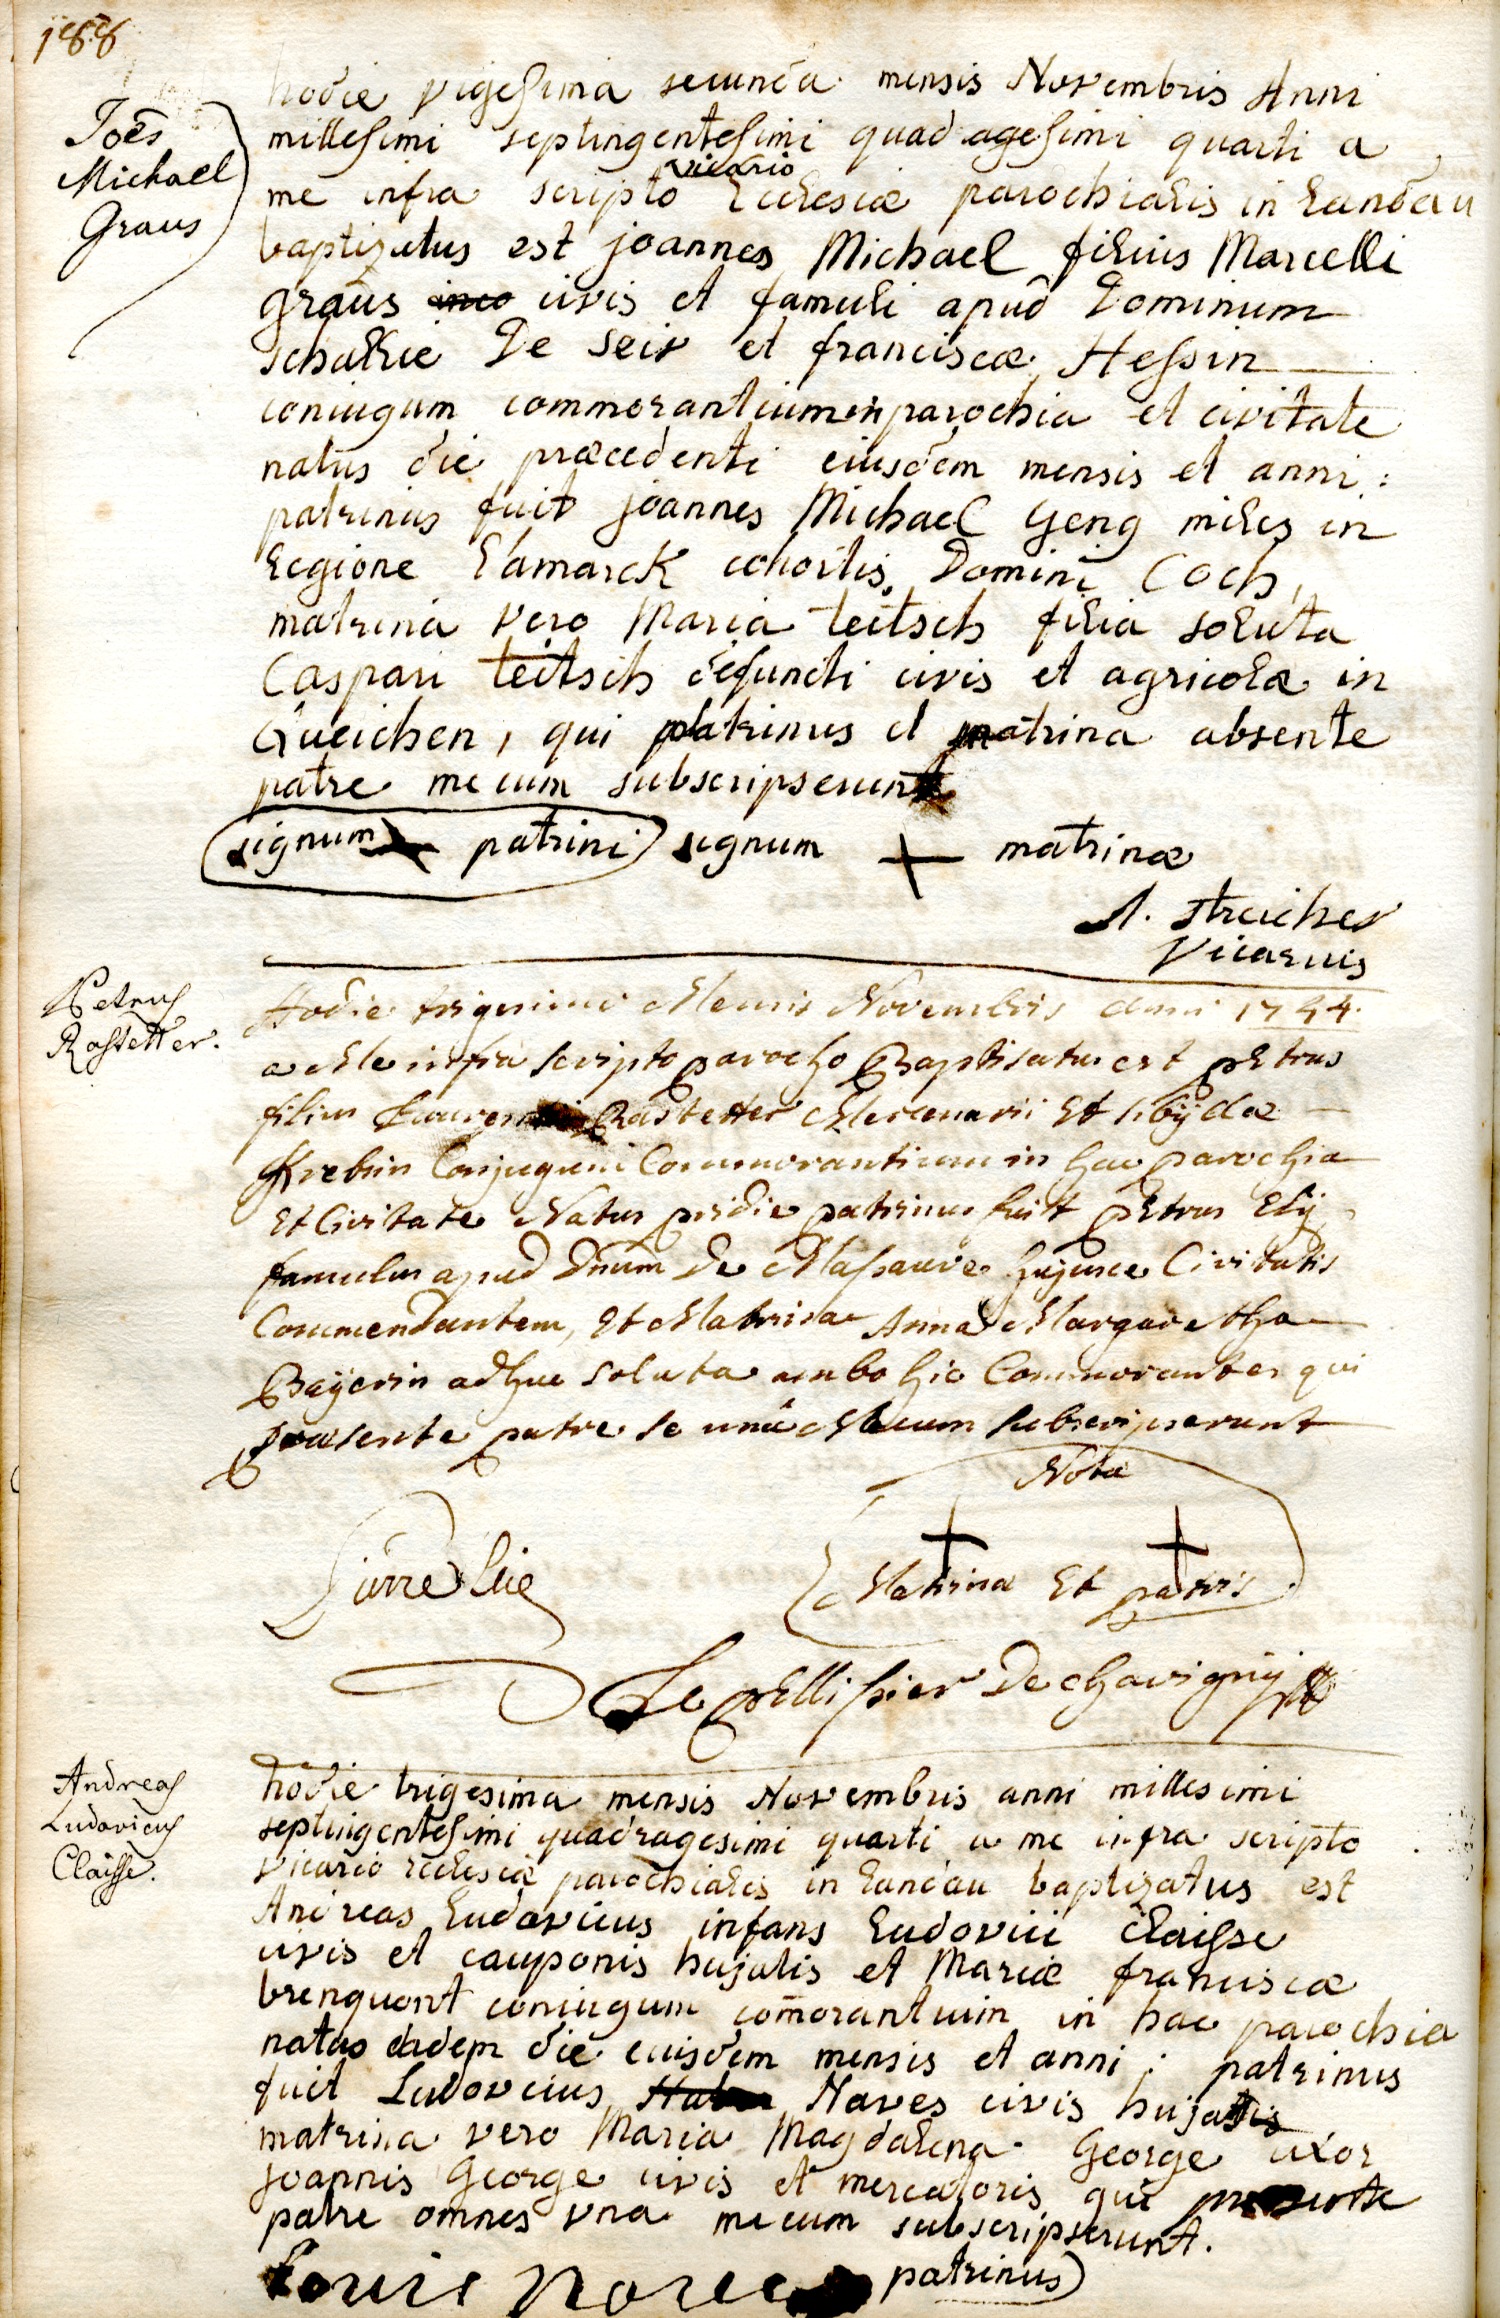 188
Joēs
Michael
Graus
hodie vigesima secunda mensis Novembris Anni
millesimi septingentesimi quadragesimi quarti a
me infra scripto vicario Ecclesiæ parochialis in Landau
baptizatus est joannes Michael filius Marcelli
graus civis et famuli apud Dominum
De et franciscæ Hessin
coniugum commorantium in parochia et civitate
natus die præcedenti eiusdem mensis et anni:
patrinus fuit joannes Michael Geng miles in
legione Lamarck cohortis Domini Coch,
matrina vero Maria teitsch filia soluta
Caspari teitsch defuncti civis et agricolæ in
Queichen, qui patrinus et matrina absente
patre mecum subscripserunt
signum patrini signum + matrinæ
A. Streicher
Vicarius
Petrus
Rastetter.
Hodie trigesima Mensis Novembris Anni 1744.
a Me infra scripto parocho Baptisatus est pEtrus
filius Rastetter Mercenarii Et
Krebsin Conjugum Commorantium in hac parochia
Et Civitate Natus pridie patrinus fuit pEtrus Ely
famulus apud Dnum De Massauve hujusce Civitatis
Commendantem, Et Matrina Anna Margaretha
Beyerin adhuc soluta ambo hic Commorantes qui
præsente patre se unà Mecum subscripserunt
Nota
Pierre Elie
+ +
Matrinæ Et patris.
Le pEllissier De chavigny
Andreas
Ludovicus
Claisse.
hodie trigesima mensis Novembris anni millesimi
septingentesimi quadragesimi quarti a me infra scripto
vicario ecclesiæ parochialis in Landau baptizatus est
Andreas Ludovicus infans Ludovici Claisse
civis et cauponis hujatis et Mariæ franciscæ
brenquont coniugum com̄orantium in hac parochia
natus eadem die eiusdem mensis et anni: patrinus
fuit Ludovicus Naves civis hujatis
matrina vero Maria Magdalena George uxor
joannis George civis et mercatoris qui presente
patre omnes una mecum subscripserunt.
Louis patrinus)